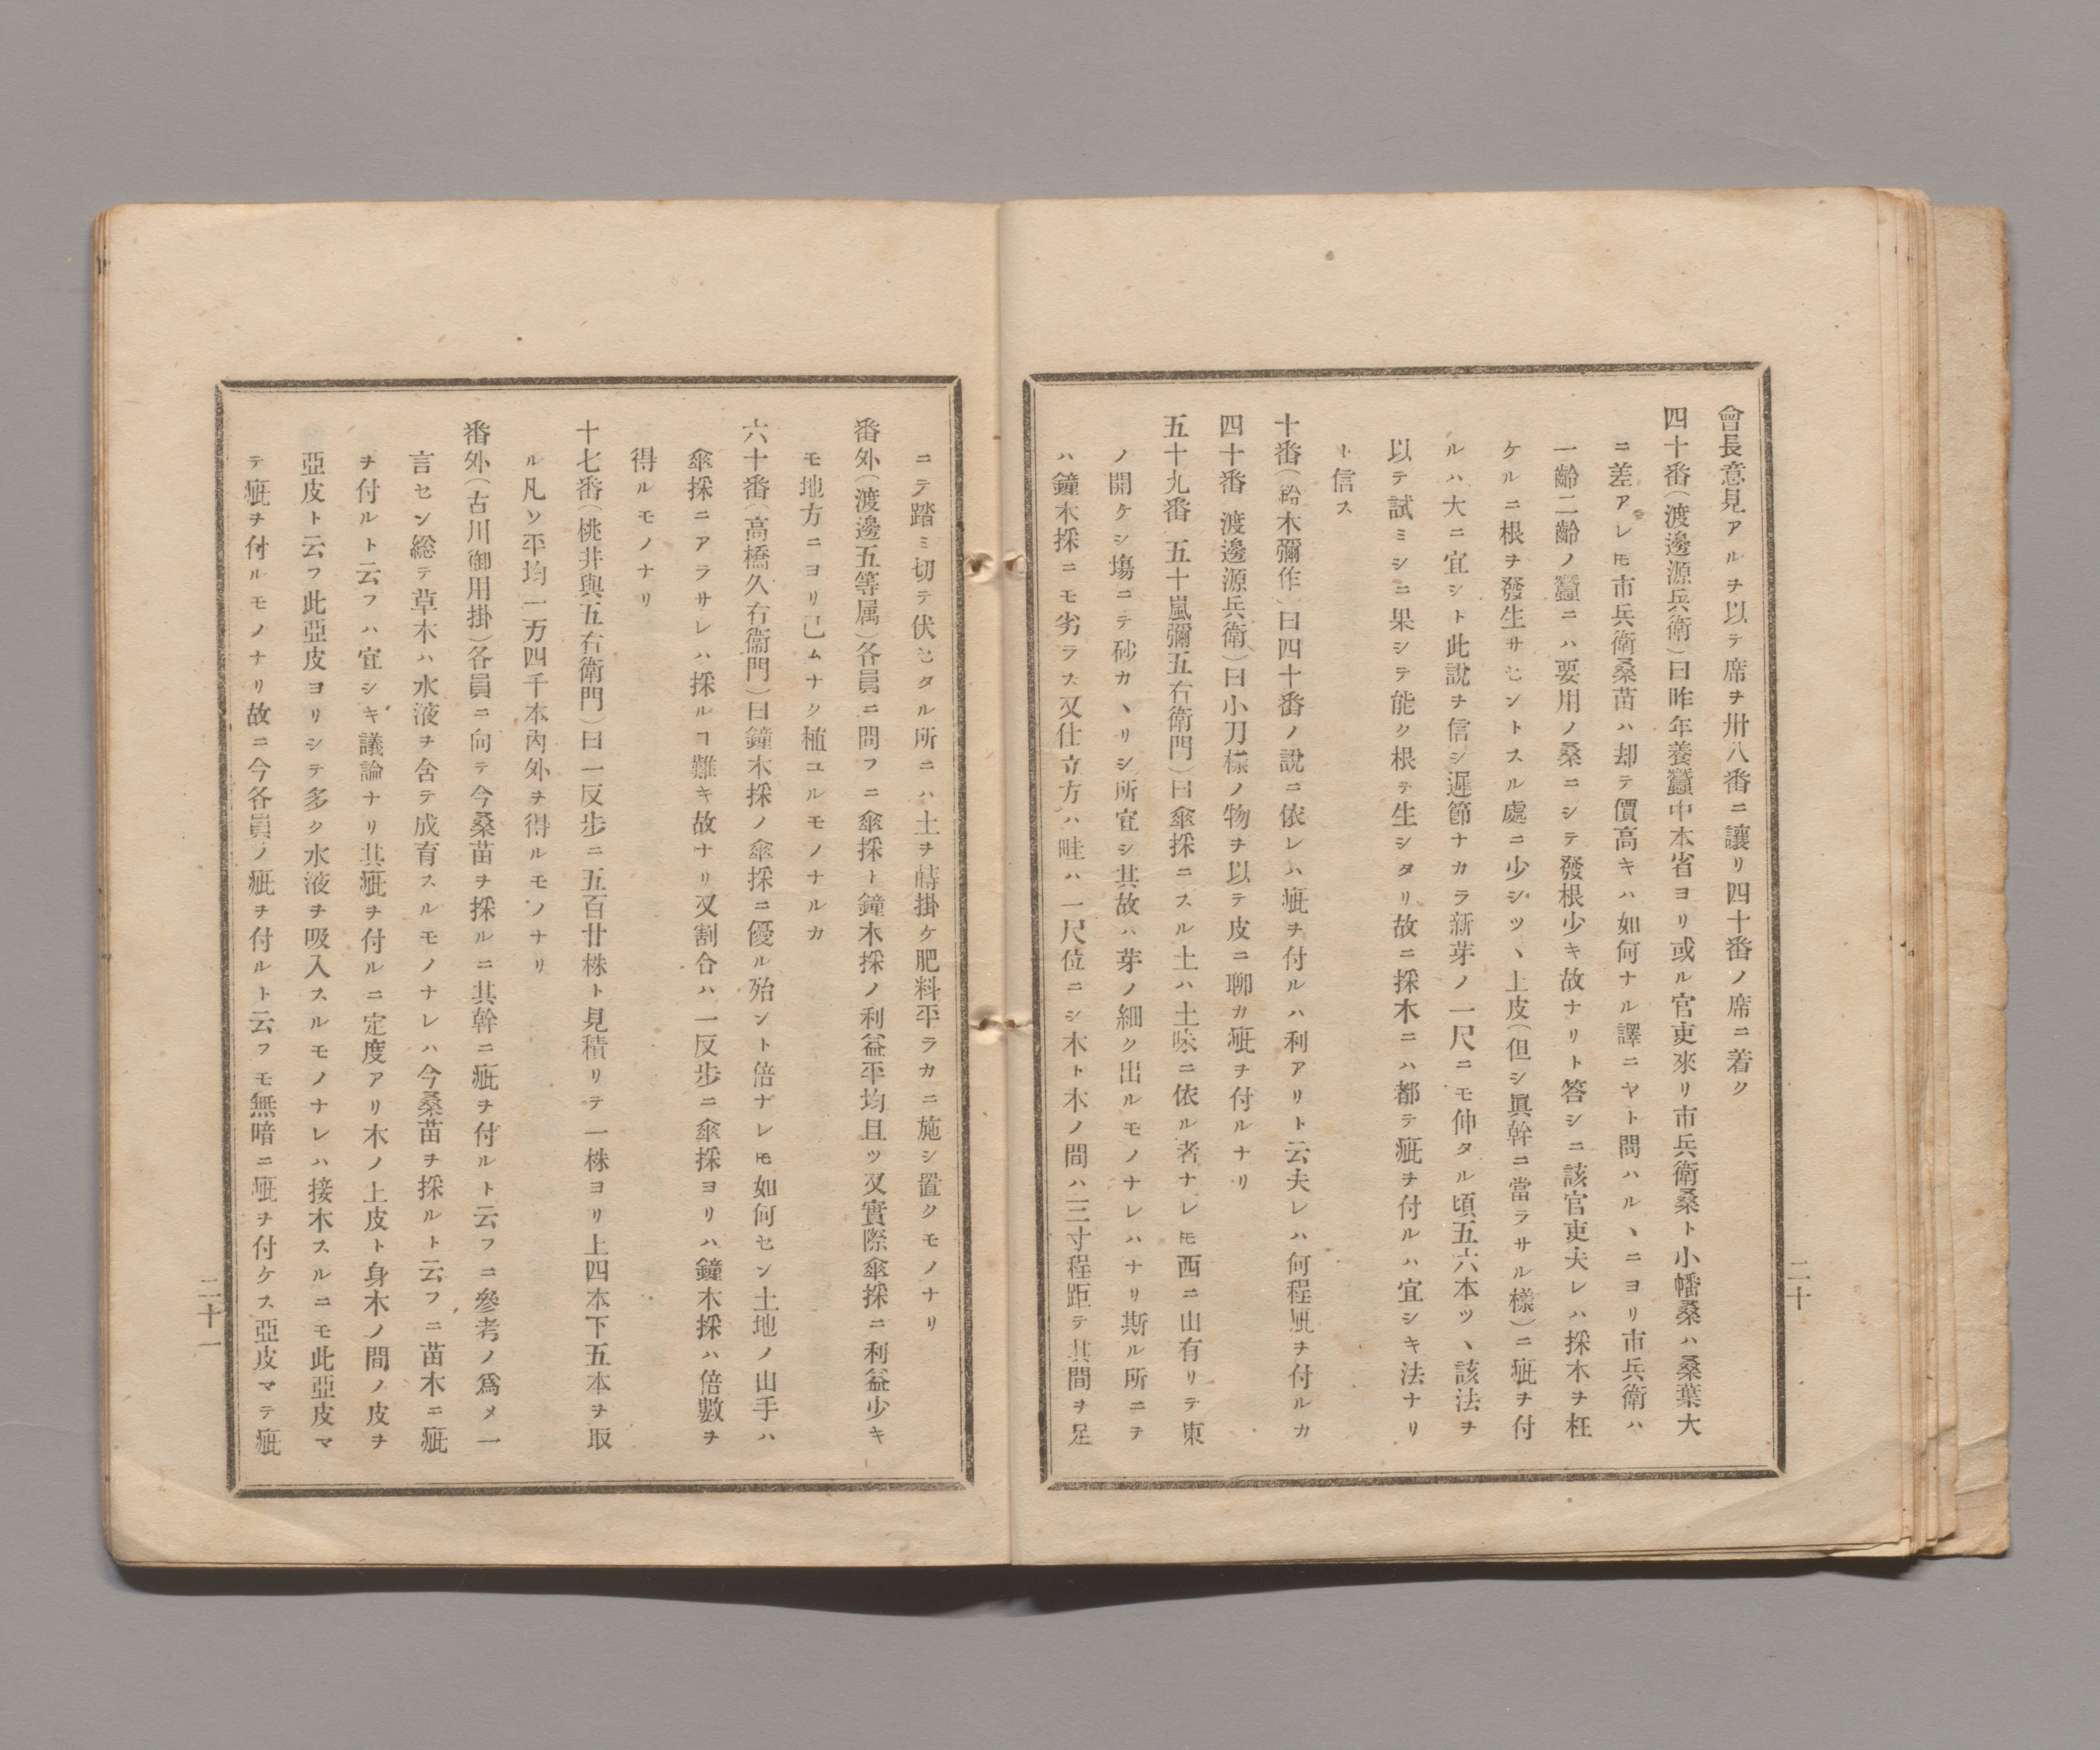 會長意見アルヲ以テ席ヲ卅八番ニ讓リ四十番ノ席ニ着ク
四十番(渡邊源兵衛)曰昨年養蠶中本省ヨリ或ル官吏來リ市兵衛桑ト小幡桑ハ桑葉大
ニ差アレ𪜈市兵衛桑苗ハ却テ價高キハ如何ナル譯ニヤト問ハルヽニヨリ市兵衛ハ
一齡二齡ノ蠶ニハ要用ノ桑ニシテ發根少キ故ナリト答シニ該官吏夫レハ採木ヲ枉
ケルニ根ヲ發生サセントスル處ニ少シツヽ上皮(但シ眞幹ニ當ラサル樣)ニ疵ヲ付
ルハ大ニ宜シト此說ヲ信シ遲節ナカラ新芽ノ一尺ニモ伸タル頃五六本ツヽ該法ヲ
以テ試ミシニ果シテ能ク根ヲ生シタリ故ニ採木ニハ都テ疵ヲ付ルハ宜シキ法ナリ
ト信ス
十番(鈴木彌作)曰四十番ノ說ニ依レハ疵ヲ付ルハ利アリト云夫レハ何程疵ヲ付ルカ
四十番(渡邊源兵衛)曰小刀樣ノ物ヲ以テ皮ニ聊カ疵ヲ付ルナリ
五十九番(五十嵐彌五右衛門)曰傘採ニスル土ハ土味ニ依ル者ナレ𪜈西ニ山有リテ東
ノ開ケシ塲ニテ砂カヽリシ所宜シ其故ハ芽ノ細ク出ルモノナレハナリ斯ル所ニテ
ハ鐘木採ニモ劣ラス又仕立方ハ畦ハ一尺位ニシ木ト木ノ間ハ三寸程距テ其間ヲ足
二十
ニテ踏ミ切テ伏セタル所ニハ土ヲ蒔掛ケ肥料平ラカニ施シ置クモノナリ
番外(渡邊五等属)各員ニ問フニ傘採ト鐘木採ノ利益平均且ツ又實際傘採ニ利益少キ
モ地方ニヨリ已ムナク植ユルモノナルカ
六十番(高橋久右衞門)曰鐘木採ノ傘採ニ優ル殆ント倍ナレ𪜈如何セン土地ノ山手ハ
傘採ニアラサレハ採ルヿ難キ故ナリ又割合ハ一反歩ニ傘採ヨリハ鐘木採ハ倍數ヲ
得ルモノナリ
十七番(桃井與五右衛門)曰一反歩ニ五百廿株ト見積リテ一株ヨリ上四本下五本ヲ取
ル凡ソ平均一万四千本內外ヲ得ルモノナリ
番外(古川御用掛)各員ニ向テ今桑苗ヲ採ルニ其幹ニ疵ヲ付ルト云フニ參考ノ爲メ一
言セン総テ草木ハ水液ヲ含テ成育スルモノナレハ今桑苗ヲ採ルト云フニ苗木ニ疵
ヲ付ルト云フハ宜シキ議論ナリ其疵ヲ付ルニ定度アリ木ノ上皮ト身木ノ間ノ皮ヲ
亞皮ト云フ此亞皮ヨリシテ多ク水液ヲ吸入スルモノナレハ接木スルニモ此亞皮マ
テ疵ヲ付ルモノナリ故ニ今各員ノ疵ヲ付ルト云フモ無暗ニ疵ヲ付ケス亞皮マテ疵
二十一